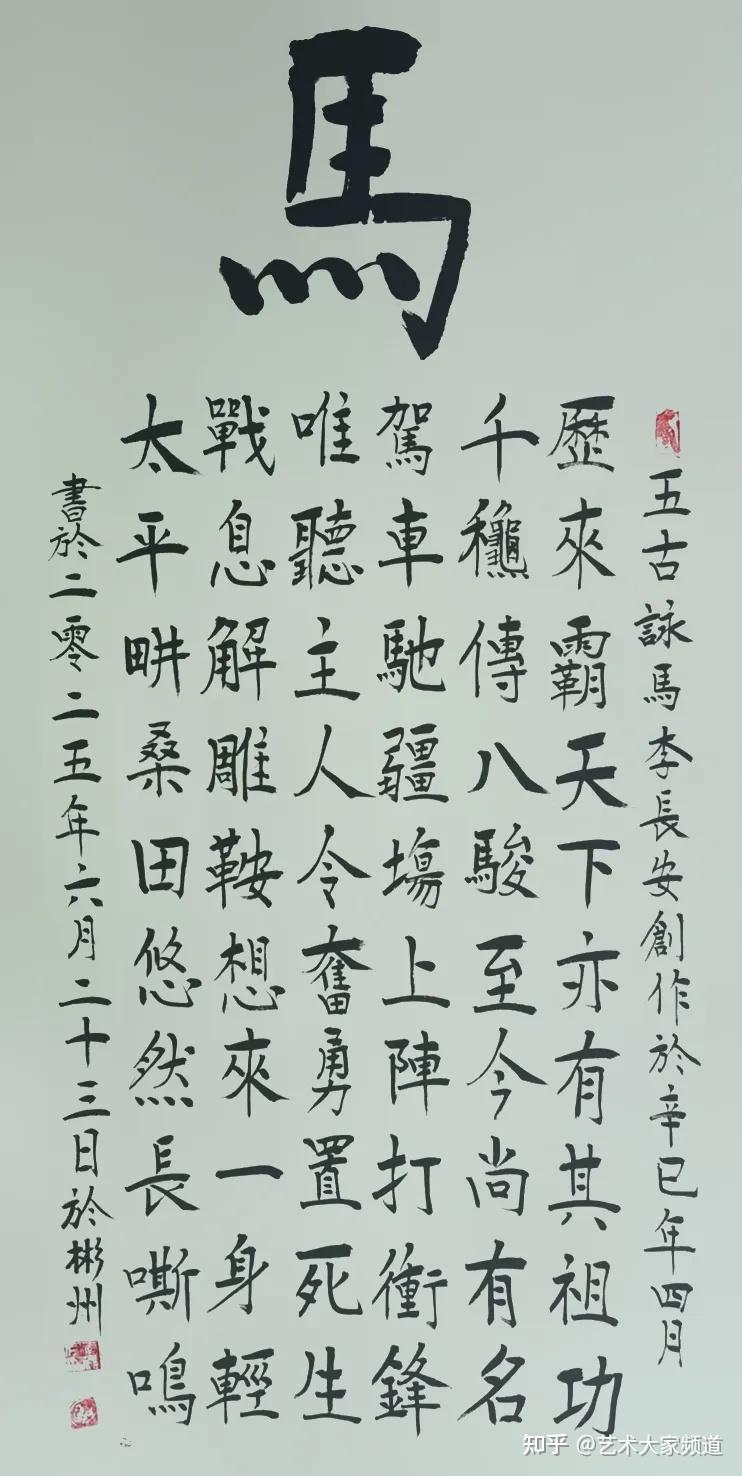 馬
五古詠馬李長安創作於辛巳年四月
歷來霸天下亦有其祖功
千穐傳八駿至今尚有名
駕車馳疆場上陣打衝鋒
唯聽主人令奮勇置死生
戰息解雕鞍想來一身輕
太平畊桑田悠然長嘶鳴
書於二零二五年六月二十三日於彬州
知乎 @艺术大家频道